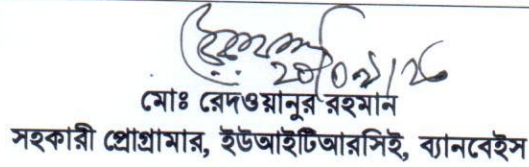 মোঃ রেদওয়ানুর রহমান
সহকারী প্রোগ্রামার, ইউআইটিআরসিই, ব্যানবেইস